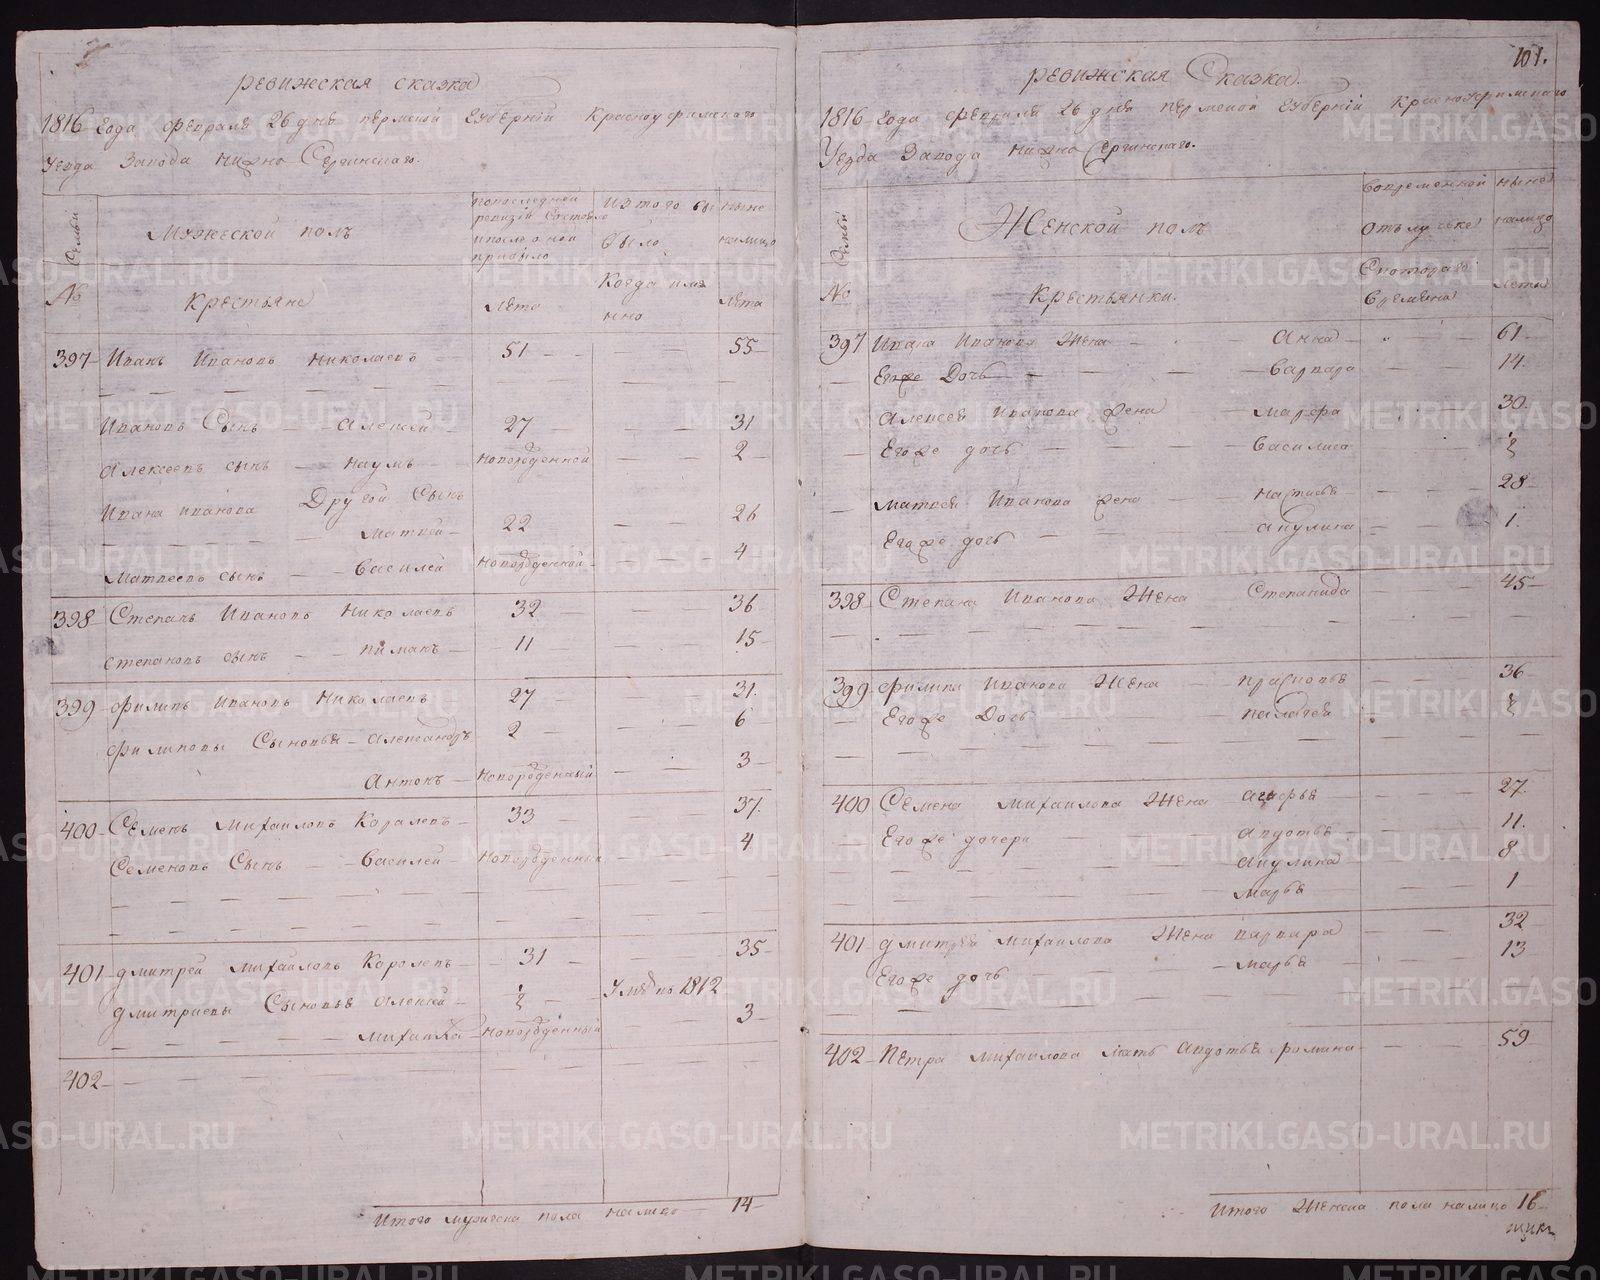 ревижская сказка
1816 года февраля 26 дня пермской губернiи Красноуфимскаго
Уезда Завода нижно Сергинскаго.
Семьи
Мужеской полъ
попоследней ревизiи состояло и после оной прибыло
изтого вы было
ныне налицо
№
крестьяне
лета
Когда имянно
лета
397 Иванъ Ивановъ Николаевъ 51 55
Ивановъ Сынъ Алексей 27 31
Алексеевъ сынъ наумъ новорожденной 2
Ивана иванова Другой Сынъ
матвей 22 26
матвеевъ сынъ василей новорожденной 4
398 Степанъ Ивановъ Николаевъ 32 36
степановъ сынъ пиманъ 11 15
399 филипъ Ивановъ Николаевъ 27 31.
филиповы Сыновья александръ 2 6
Антонъ новорожденный 3
400 Семенъ михаиловъ Королевъ 33 37.
Семеновъ Сынъ василей новорожденный 4
401 дмитрей михаиловъ Королевъ 31 35
дмитриевы Сыновья алексей ½ Умре въ 1812
михайла новорожденный 3
402
Итого мужеска пола налицо 14
101.
ревижская Сказка.
1816 года февраля 26 дня пермской губернiй красноуфимскаго
Уезда Завода нижно Сергинскаго.
Семьи
Женской полъ
вовременной отълучьке
ныне налицо
№
Крестьянки.
Скотораго времяни
лета
397 Ивана Иванова Жена Анна 61
Егоже Дочь варвара 14.
Алексея Иванова жена марфа 30.
Егоже дочь василиса ½
матвея Иванова жена настасья 28
Егоже дочь акулина 1.
398 Степана Иванова Жена Степанида 45
399 филипа Иванова Жена прасковья 36
Егоже Дочь палагея ½
400 Семена михаилова Жена агафья 27.
Егоже дочери авдотья 11.
акулина 8
марья 1
401 дмитрея михаилова Жена варвара 32
Егоже дочь марья 13
402 Петра михаилова мать авдотья фомина 59
Итого Женска пола налицо 16
METRIKI.GASO-URAL.RU